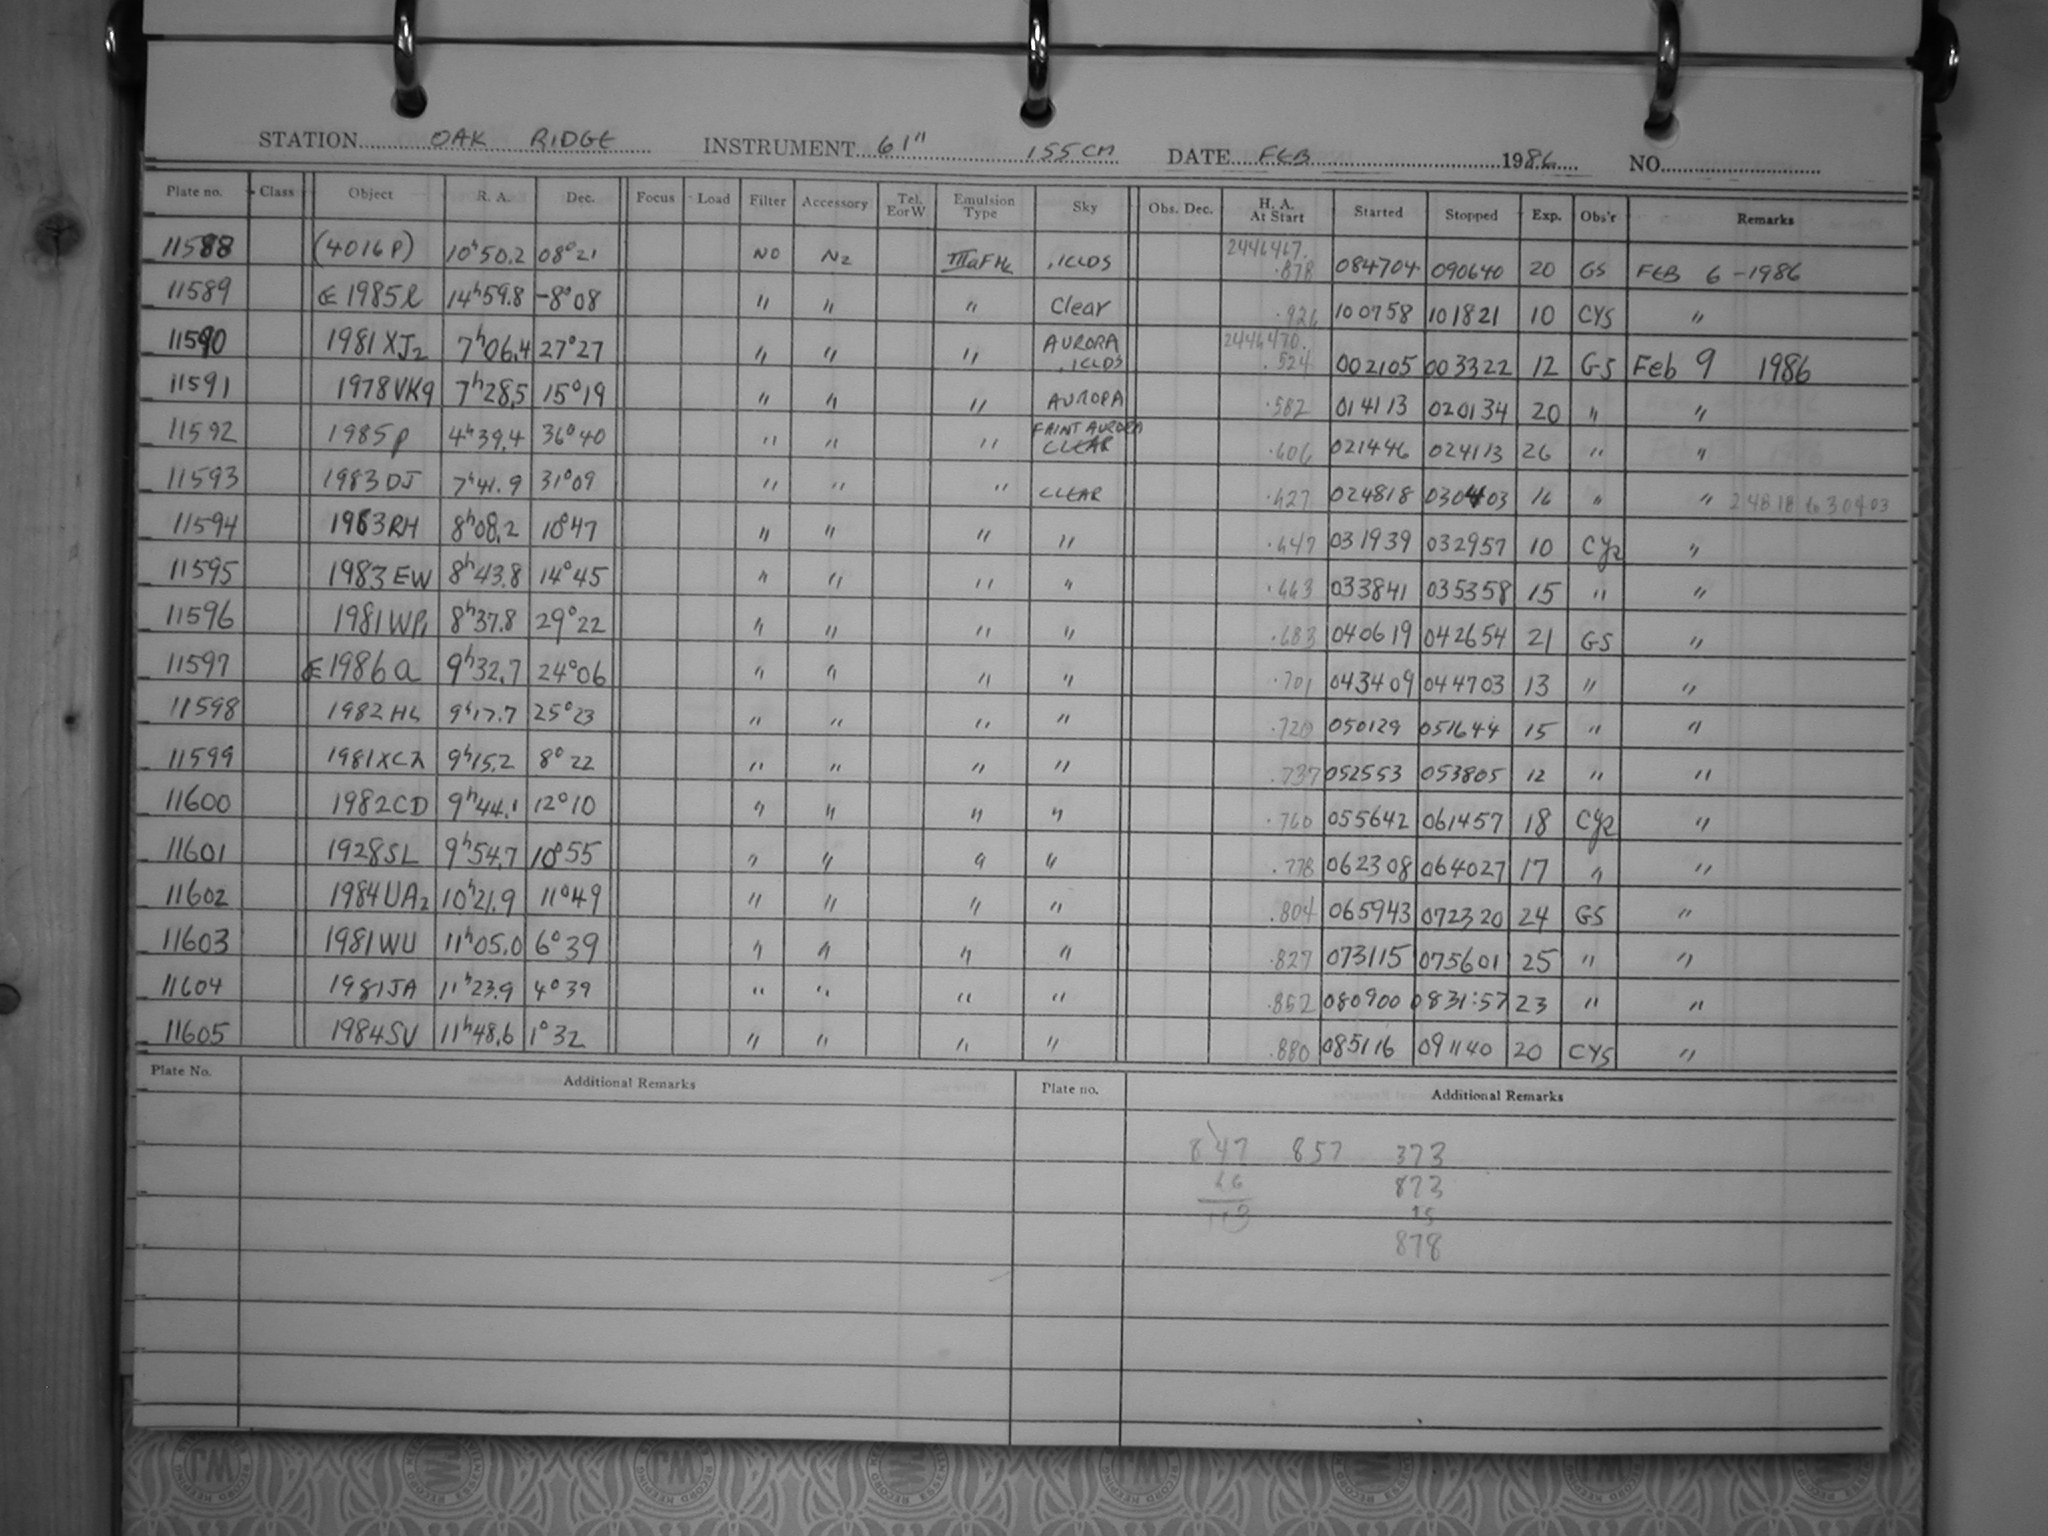 STATION OAK RIDGE INSTRUMENT 61" 155CM DATE FEB 1986 NO.
Plate no. Class Object R. A. Dec. Focus Load Filter Accessory Tel. E or W Emulsion Type Sky Obs. Dec. H. A. At Start Started Stopped Exp. Obs'r Remarks
11588 (4016P) 10h50.2 08°21 NO N2 IIIaF .1CLDS 2446467. .878 084704 090640 20 GS FEB 6 - 1986
11589 1985l 14h59.8 -8°08 " " " Clear .926 100758 101821 10 CYS "
11590 1981 XJ2 7h06.4 27°27 " " " AURORA .1CLDS 2446470. .524 002105 003322 12 GS Feb 9 1986
11591 1978VK9 7h28.5 15°19 " " " AURORA .582 014113 020134 20 " "
11592 1985p 4h39.4 36°40 " " " FAINT AURORA CLEAR .606 021446 024113 26 " "
11593 1983DJ 7h41.9 31°09 " " " CLEAR .627 024818 030403 16 " " 24818 to 30403
11594 1983RH 8h08.2 10°47 " " " " .647 031939 032957 10 "
11595 1983 EW 8h43.8 14°45 " " " " .663 033841 035358 15 " "
11596 1981WP1 8h37.8 29°22 " " " " .683 040619 042654 21 GS "
11597 1986a 9h32.7 24°06 " " " " .701 043409 044703 13 " "
11598 1982 HL 9h17.7 25°23 " " " " .720 050129 051644 15 " "
11599 1981XC2 9h15.2 8°22 " " " " .737 052553 053805 12 " "
11600 1982CD 9h44.1 12°10 " " " " .760 055642 061457 18 "
11601 1928SL 9h54.7 10°55 " " " " .778 062308 064027 17 " "
11602 1984UA2 10h21.9 11°49 " " " " .804 065943 072320 24 GS "
11603 1981WU 11h05.0 6°39 " " " " .827 073115 075601 25 " "
11604 1981JA 11h23.9 4°39 " " " " .852 080900 0831:57 23 " "
11605 1984SV 11h48.6 1°32 " " " " .880 085116 091140 20 CYS "
Plate No. Additional Remarks Plate no. Additional Remarks
847 857 373
26 873
113 15
878